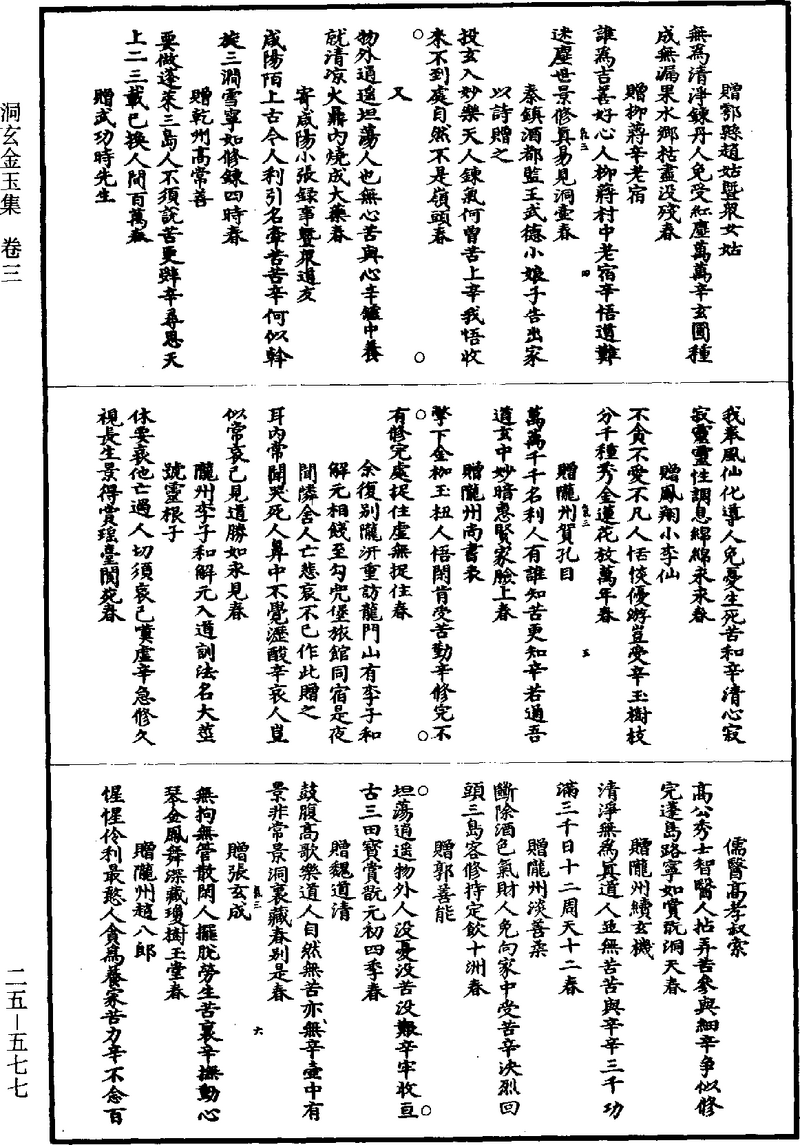 洞玄金玉集　卷三
贈鄠縣趙姑暨眾女姑
無為清淨鍊丹人免受紅塵萬萬辛玄圃種
成無漏果水鄉枯盡沒殘春
贈柳蔣辛老宿
誰為吉善好心人柳蔣村中老宿辛悟道難
迷塵世景修真易見洞壺春
秦鎮酒都監王武德小娘子告出家
以詩贈之
投玄入妙樂天人鍊氣何曾苦上辛我悟收
來不到處自然不是嶺頭春
又
物外逍遥坦蕩人也無心苦與心辛鑪中養
就清凉火鼎內燒成大藥春
寄咸陽小張録事暨眾道友
咸陽陌上古今人利引名牽苦苦辛何似斡
旋三澗雪寧如修鍊四時春
贈乾州高常善
要做蓬萊三島人不須説苦更辤辛尋思天
上二三載已換人間百萬春
贈武功時先生
我奉風仙化導人免憂生死苦和辛清心寂
寂靈靈性調息綿綿來來春
贈鳳翔小李仙
不貪不愛不凡人恬惔優游豈受辛玉樹枝
分千種秀金蓮花放萬年春
贈隴州賀孔目
萬萬千千名利人有誰知苦更知辛若過吾
道玄中妙暗惠賢家臉上春
贈隴州尚書表
擎下金枷玉杻人悟閑肯受苦勤辛修完不
有修完處捉住虛無捉住春
余復別隴汧重訪龍門山有李子和
解元相餞至勾兜堡旅館同宿是夜
間隣舍人亡悲哀不已作此贈之
耳內常聞哭死人鼻中不覺瀝酸辛哀人豈
似常哀己見道勝如永見春
隴州李子和解元入道訓法名大莖
號靈根子
休要哀他亡過人切須哀己嘆虛辛急修久
視長生景得賞瑶臺閬苑春
儒醫高孝叔索
高公秀士智醫人拈弄苦參與細辛爭似修
完蓬島路寧如賞翫洞天春
贈隴州續玄機
清淨無為真道人並無苦苦與辛辛三千功
滿三千日十二周天十二春
贈隴州淡善柔
斷除酒色氣財人免向家中受苦辛決烈回
頭三島客修持定飲十洲春
贈郭善能
坦蕩逍遥物外人没憂没苦没艱辛牢收亘
古三田寶賞翫元初四季春
贈魏道清
鼓腹高歌樂道人自然無苦亦無辛壺中有
景非常景洞裏藏春别是春
贈張玄成
無拘無管散閑人擺脫勞生苦裏辛撫動心
琴金鳳舞深藏瓊樹玉堂春
贈隴州趙八郎
惺惺伶利最憨人貪為養家苦力辛不念百
二五—五七七